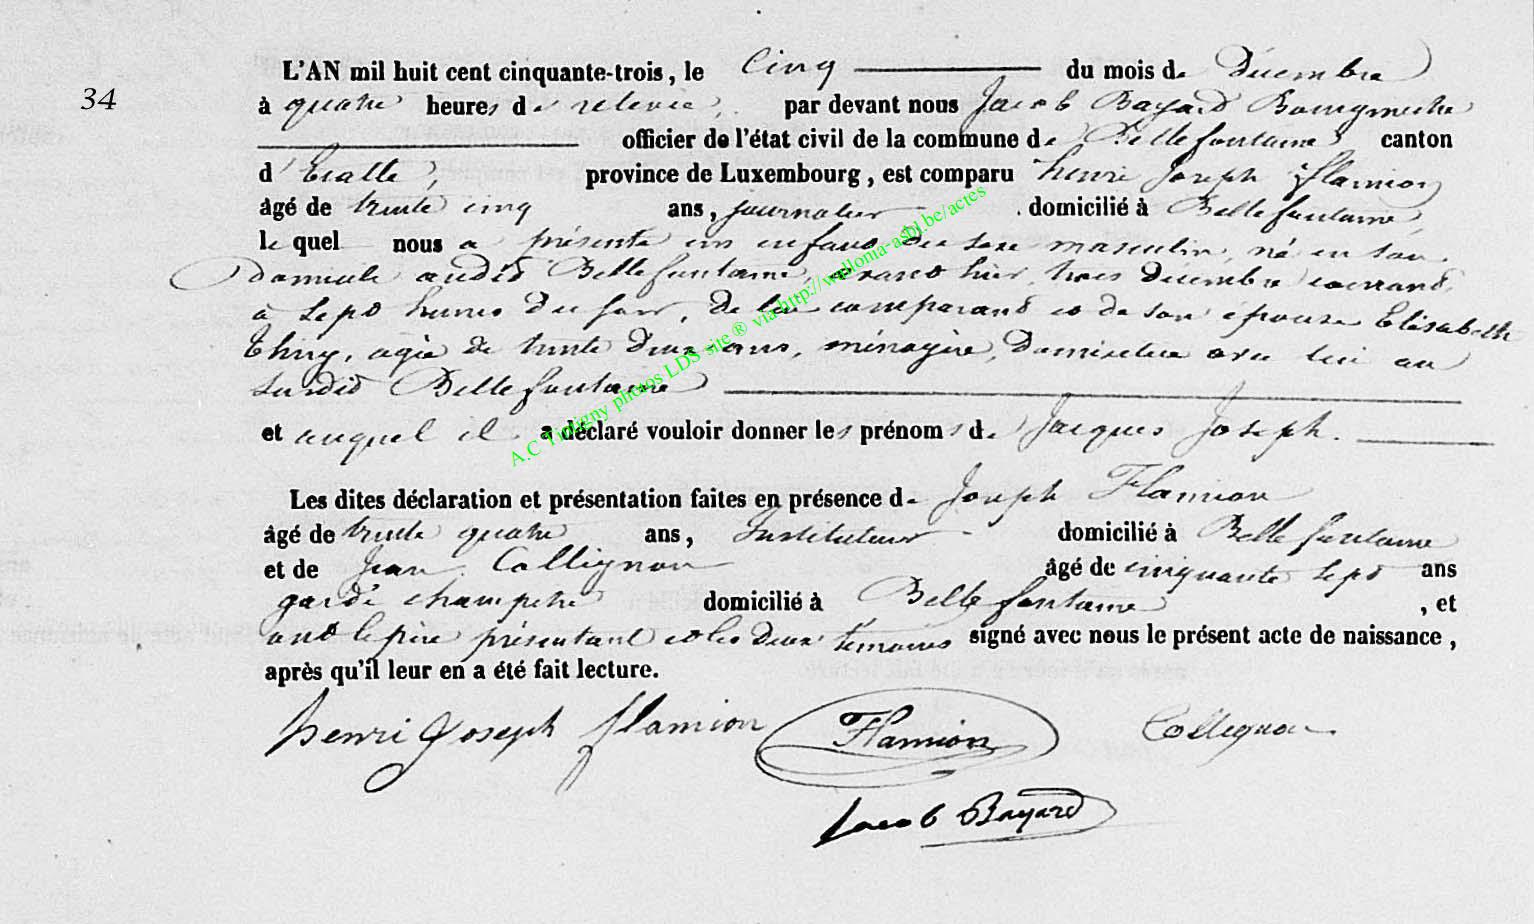 34
L'AN mil huit cent cinquante-trois, le Cinq du mois de Décembre
à quatre heures de relevée, par devant nous Jacob Bayard Bourgmestre
officier de l'état civil de la commune de Bellefontaine canton
d'Etalle, province de Luxembourg, est comparu henri Joseph flamion
âgé de trente cinq ans, journalier domicilié à Bellefontaine,
lequel nous a présenté un enfant du sexe masculin, né en son
domicile audit Bellefontaine, avant hier, trois Décembre courant,
à sept heures du soir, de lui comparant et de son épouse Elisabeth
Thiry, agée de trente deux ans, ménagère, domiciliée avec lui au
susdit Bellefontaine
et auquel il a déclaré vouloir donner les prénoms de Jacques Joseph.
Les dites déclaration et présentation faites en présence de Joseph Flamion
âgé de trente quatre ans, Instituteur domicilié à Bellefontaine
et de Jean Collignon âgé de cinquante sept ans
garde champetre domicilié à Bellefontaine, et
ont le père présentant et les deux témoins signé avec nous le présent acte de naissance,
après qu'il leur en a été fait lecture.
henri Joseph flamion Flamion Collignon
Jacob Bayard
A.C Tintigny photos LDS site ® via http://wallonia-asbl.be/actes